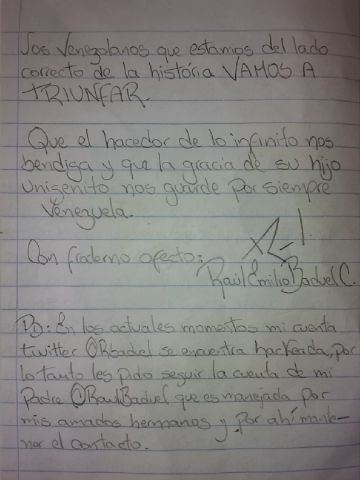 Los Venezolanos que estamos del lado
correcto de la história VAMOS A
TRIUNFAR.
Que el hacedor de lo infinito nos
bendiga y que la gracia de su hijo
unigenito nos guarde por siempre
Venezuela.
Con fraderno afecto:
Raúl Emilio Baduel C.
PD: En los actuales momentos mi cuenta
twitter @Rbaduel se encuentra hackeada, por
lo tanto les pido seguir la cuenta de mi
Padre @RaulBaduel que es manejada por
mis amados hermanos y por ahí mante-
ner el contacto.